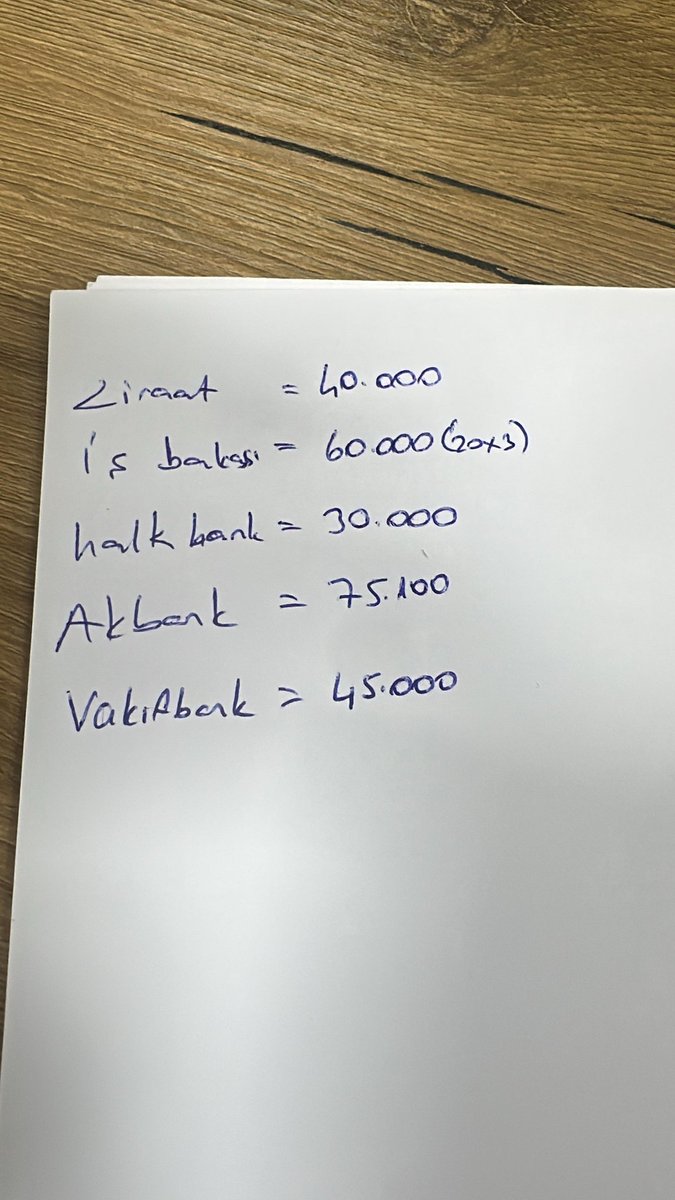 Ziraat = 40.000
iş bakası = 60.000 (20x3)
halk bank = 30.000
Akbank = 75.100
Vakıfbank = 45.000